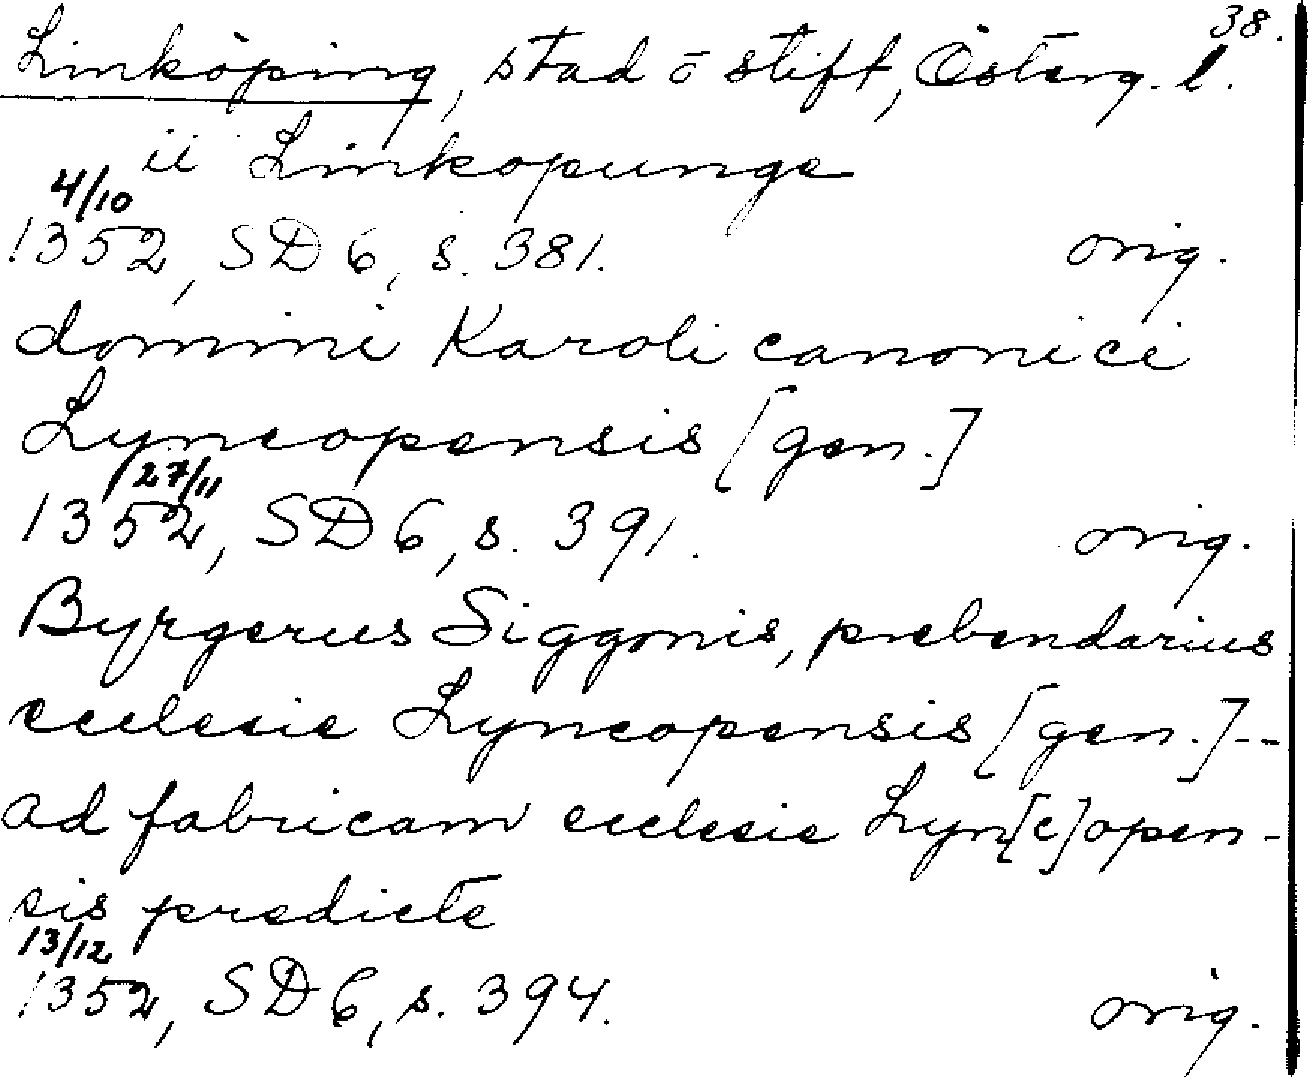 38.
Linköping, stad o stift, Österg. l.
ii Linkopunge
4/10
1352, SD 6, s. 381. orig.
domini Karoli canonici
Lyncopensis [gen.]
27/11
1352, SD 6, s. 391. orig.
Byrgerus Siggonis, prebendarius
ecclesie Lyncopensis [gen.]--
ad fabricam ecclesie Lyn[c]open-
sis predicte
13/12
1352, SD 6, s. 394. orig.